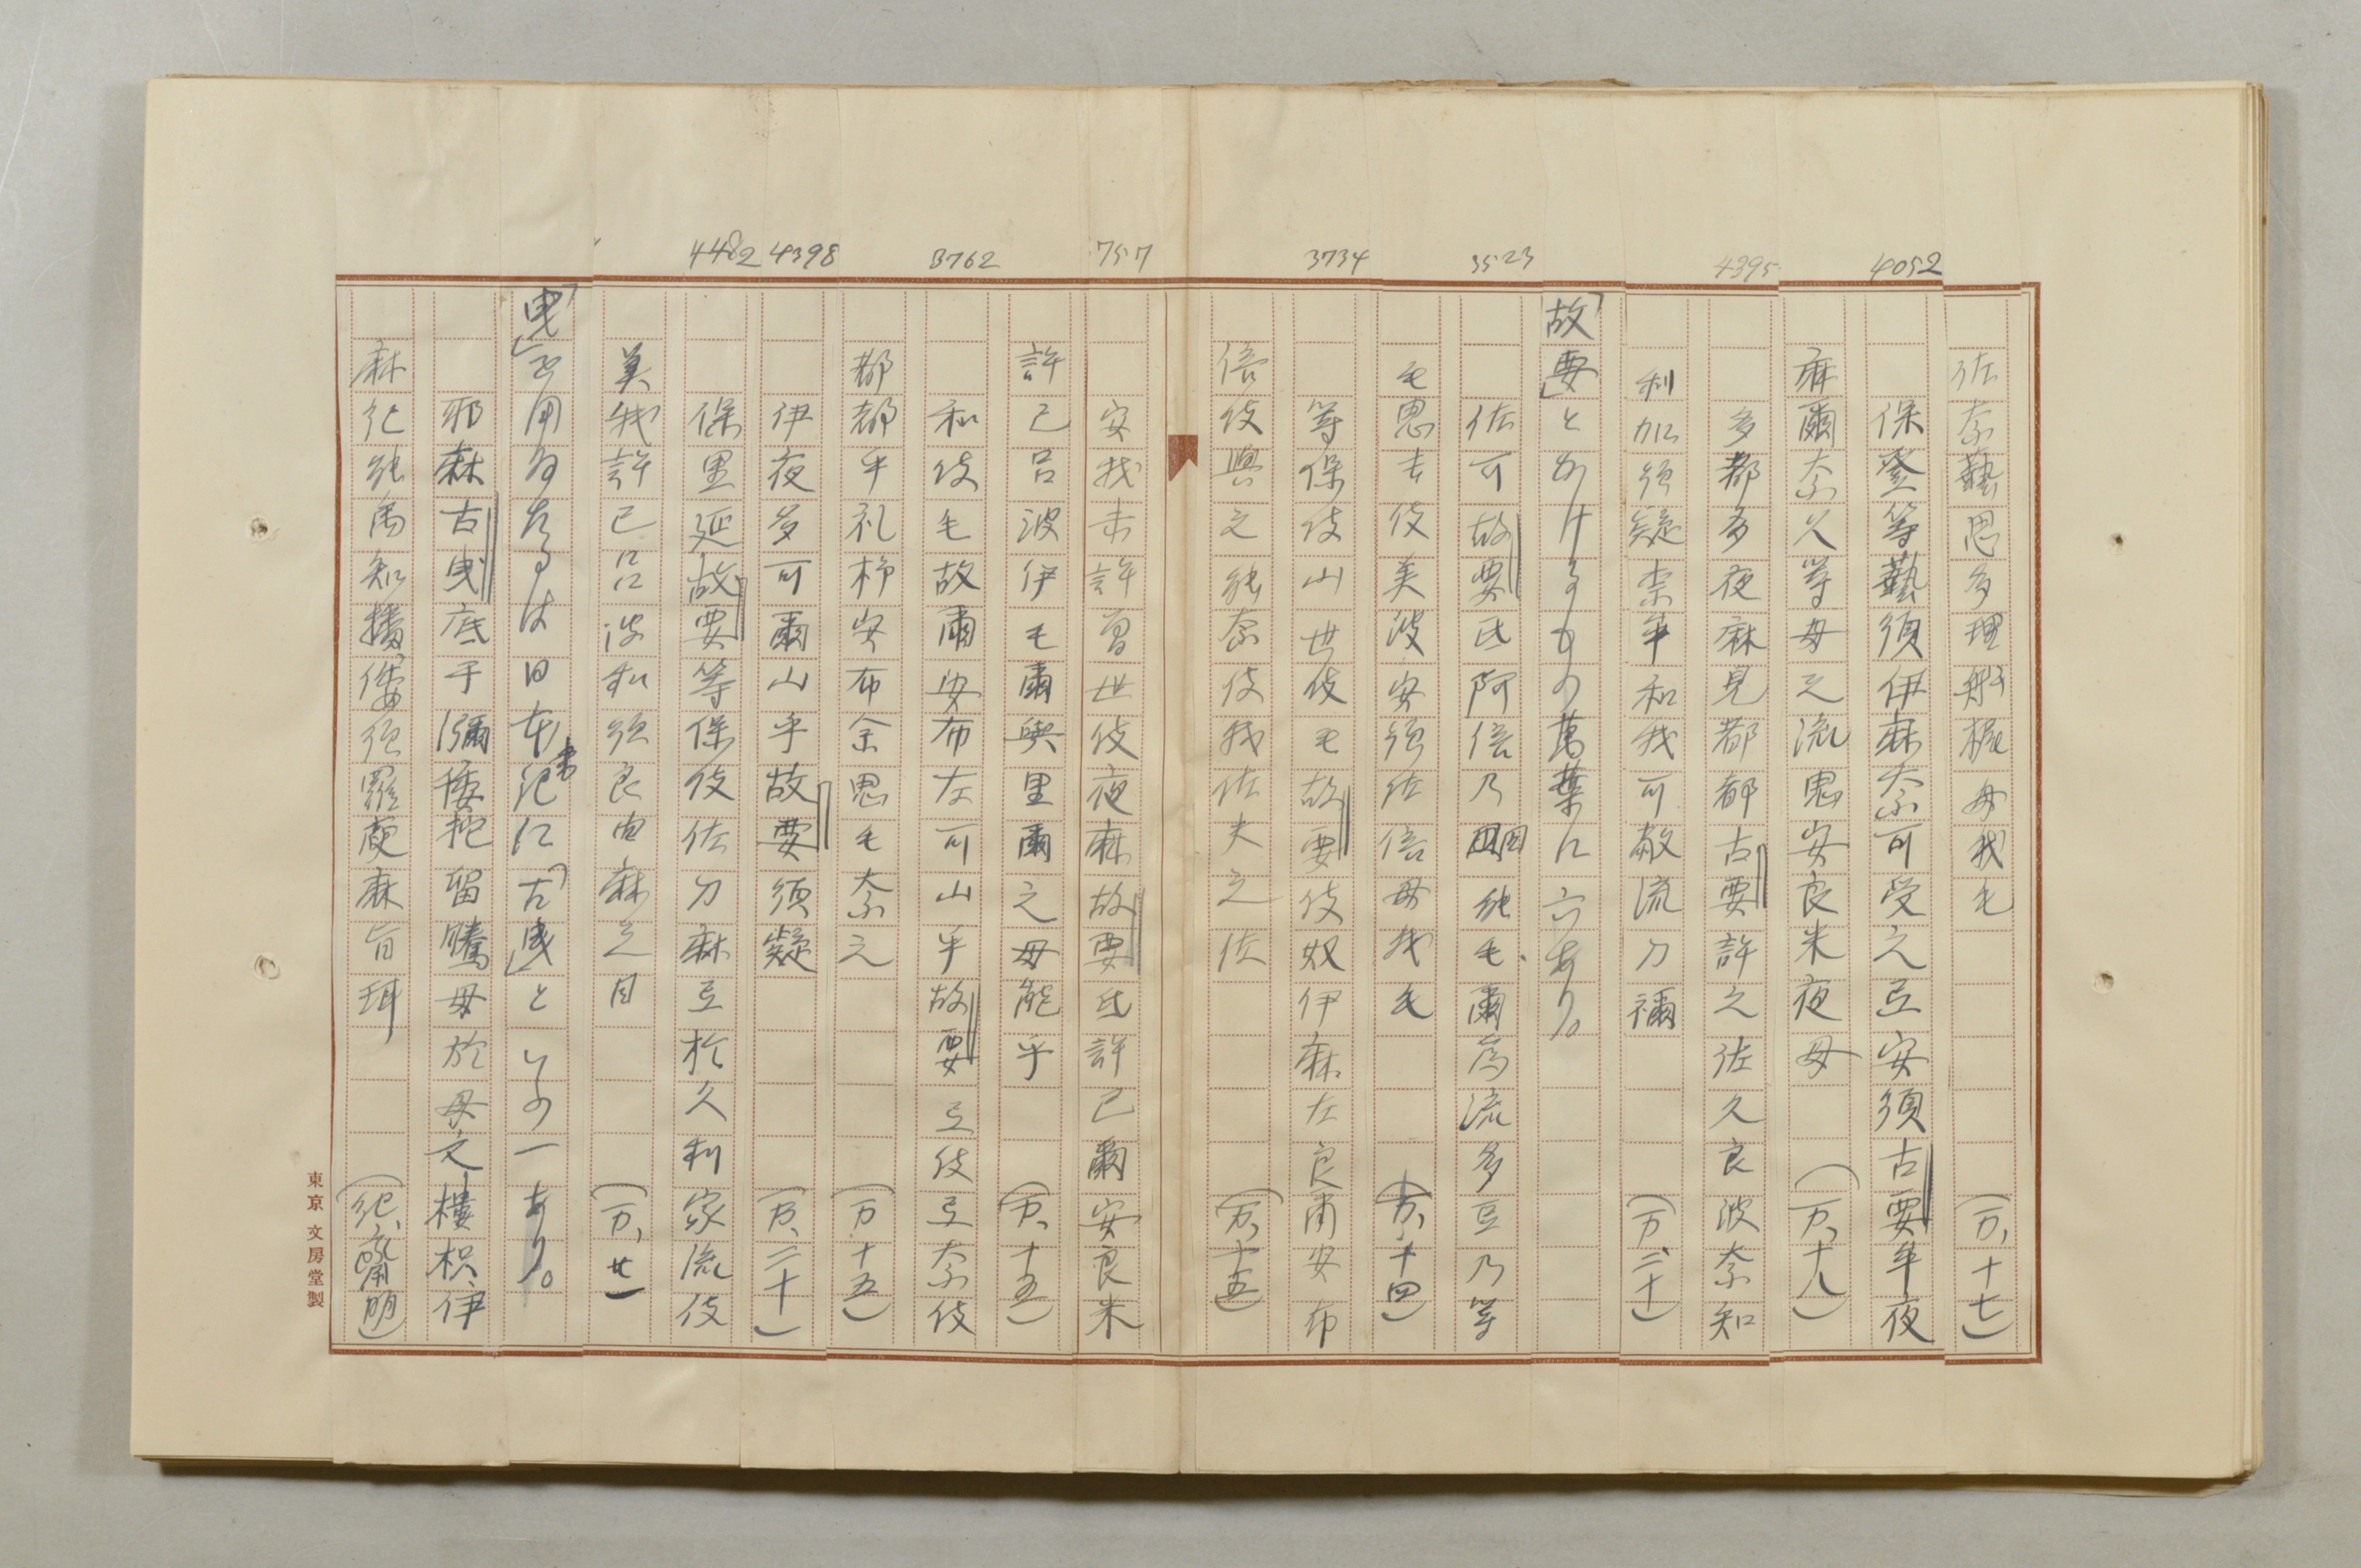 佐奈藝思多理 母我毛 (万、十七)
4052
保登等藝須伊麻奈可受之弖安須古要牟夜
麻爾奈久等母之流思安良米夜母 (万、十八)
4395
多都多夜麻見都都古要許之佐久良波奈知
利加須疑奈牟和我可敝流刀禰 (万、二十)
「故要」とかけるもの萬葉に六あり。
3523
佐可故要氐阿倍乃田能毛、爾為流多豆乃等
毛思吉伎美波安須佐倍母我毛 (万、十四)
3734
等保伎山世伎毛故要伎奴伊麻左良爾安布
倍伎與之能奈伎我佐夫之佐 (万、十五)
757
安我未許曽世伎夜麻故要氐許己爾安良米
許己呂波伊毛爾與里爾之母能乎 (万、十五)
3762
和伎毛故爾安布左可山乎故要弖伎弖奈伎
都都乎礼杼安布余思毛奈之 (万十五)
4398
伊夜多可爾山乎故要須疑 (万、二十)
4482
保里延故要等保伎佐刀麻弖於久利家流伎
美我許己呂波和須良由麻之目 (万、廿)
「曳」を用ゐたるは日本書紀に「古曳」といふの一あり。
邪麻古曳底于瀰倭柁留騰母於母之樓枳、伊
麻紀能禹知播倭須羅庾麻旨珥 (紀、齊明)
東京 文房堂製